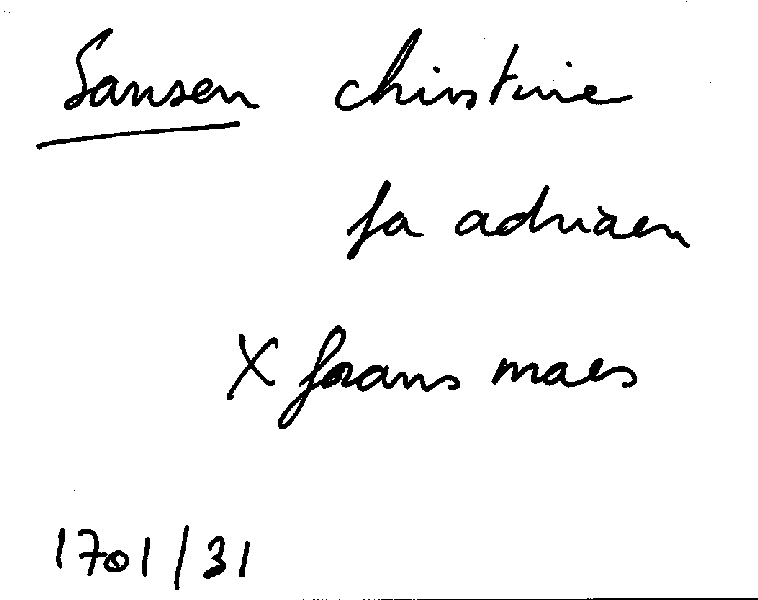 Sansen christine
fa adriaen
X frans maes
1701/31